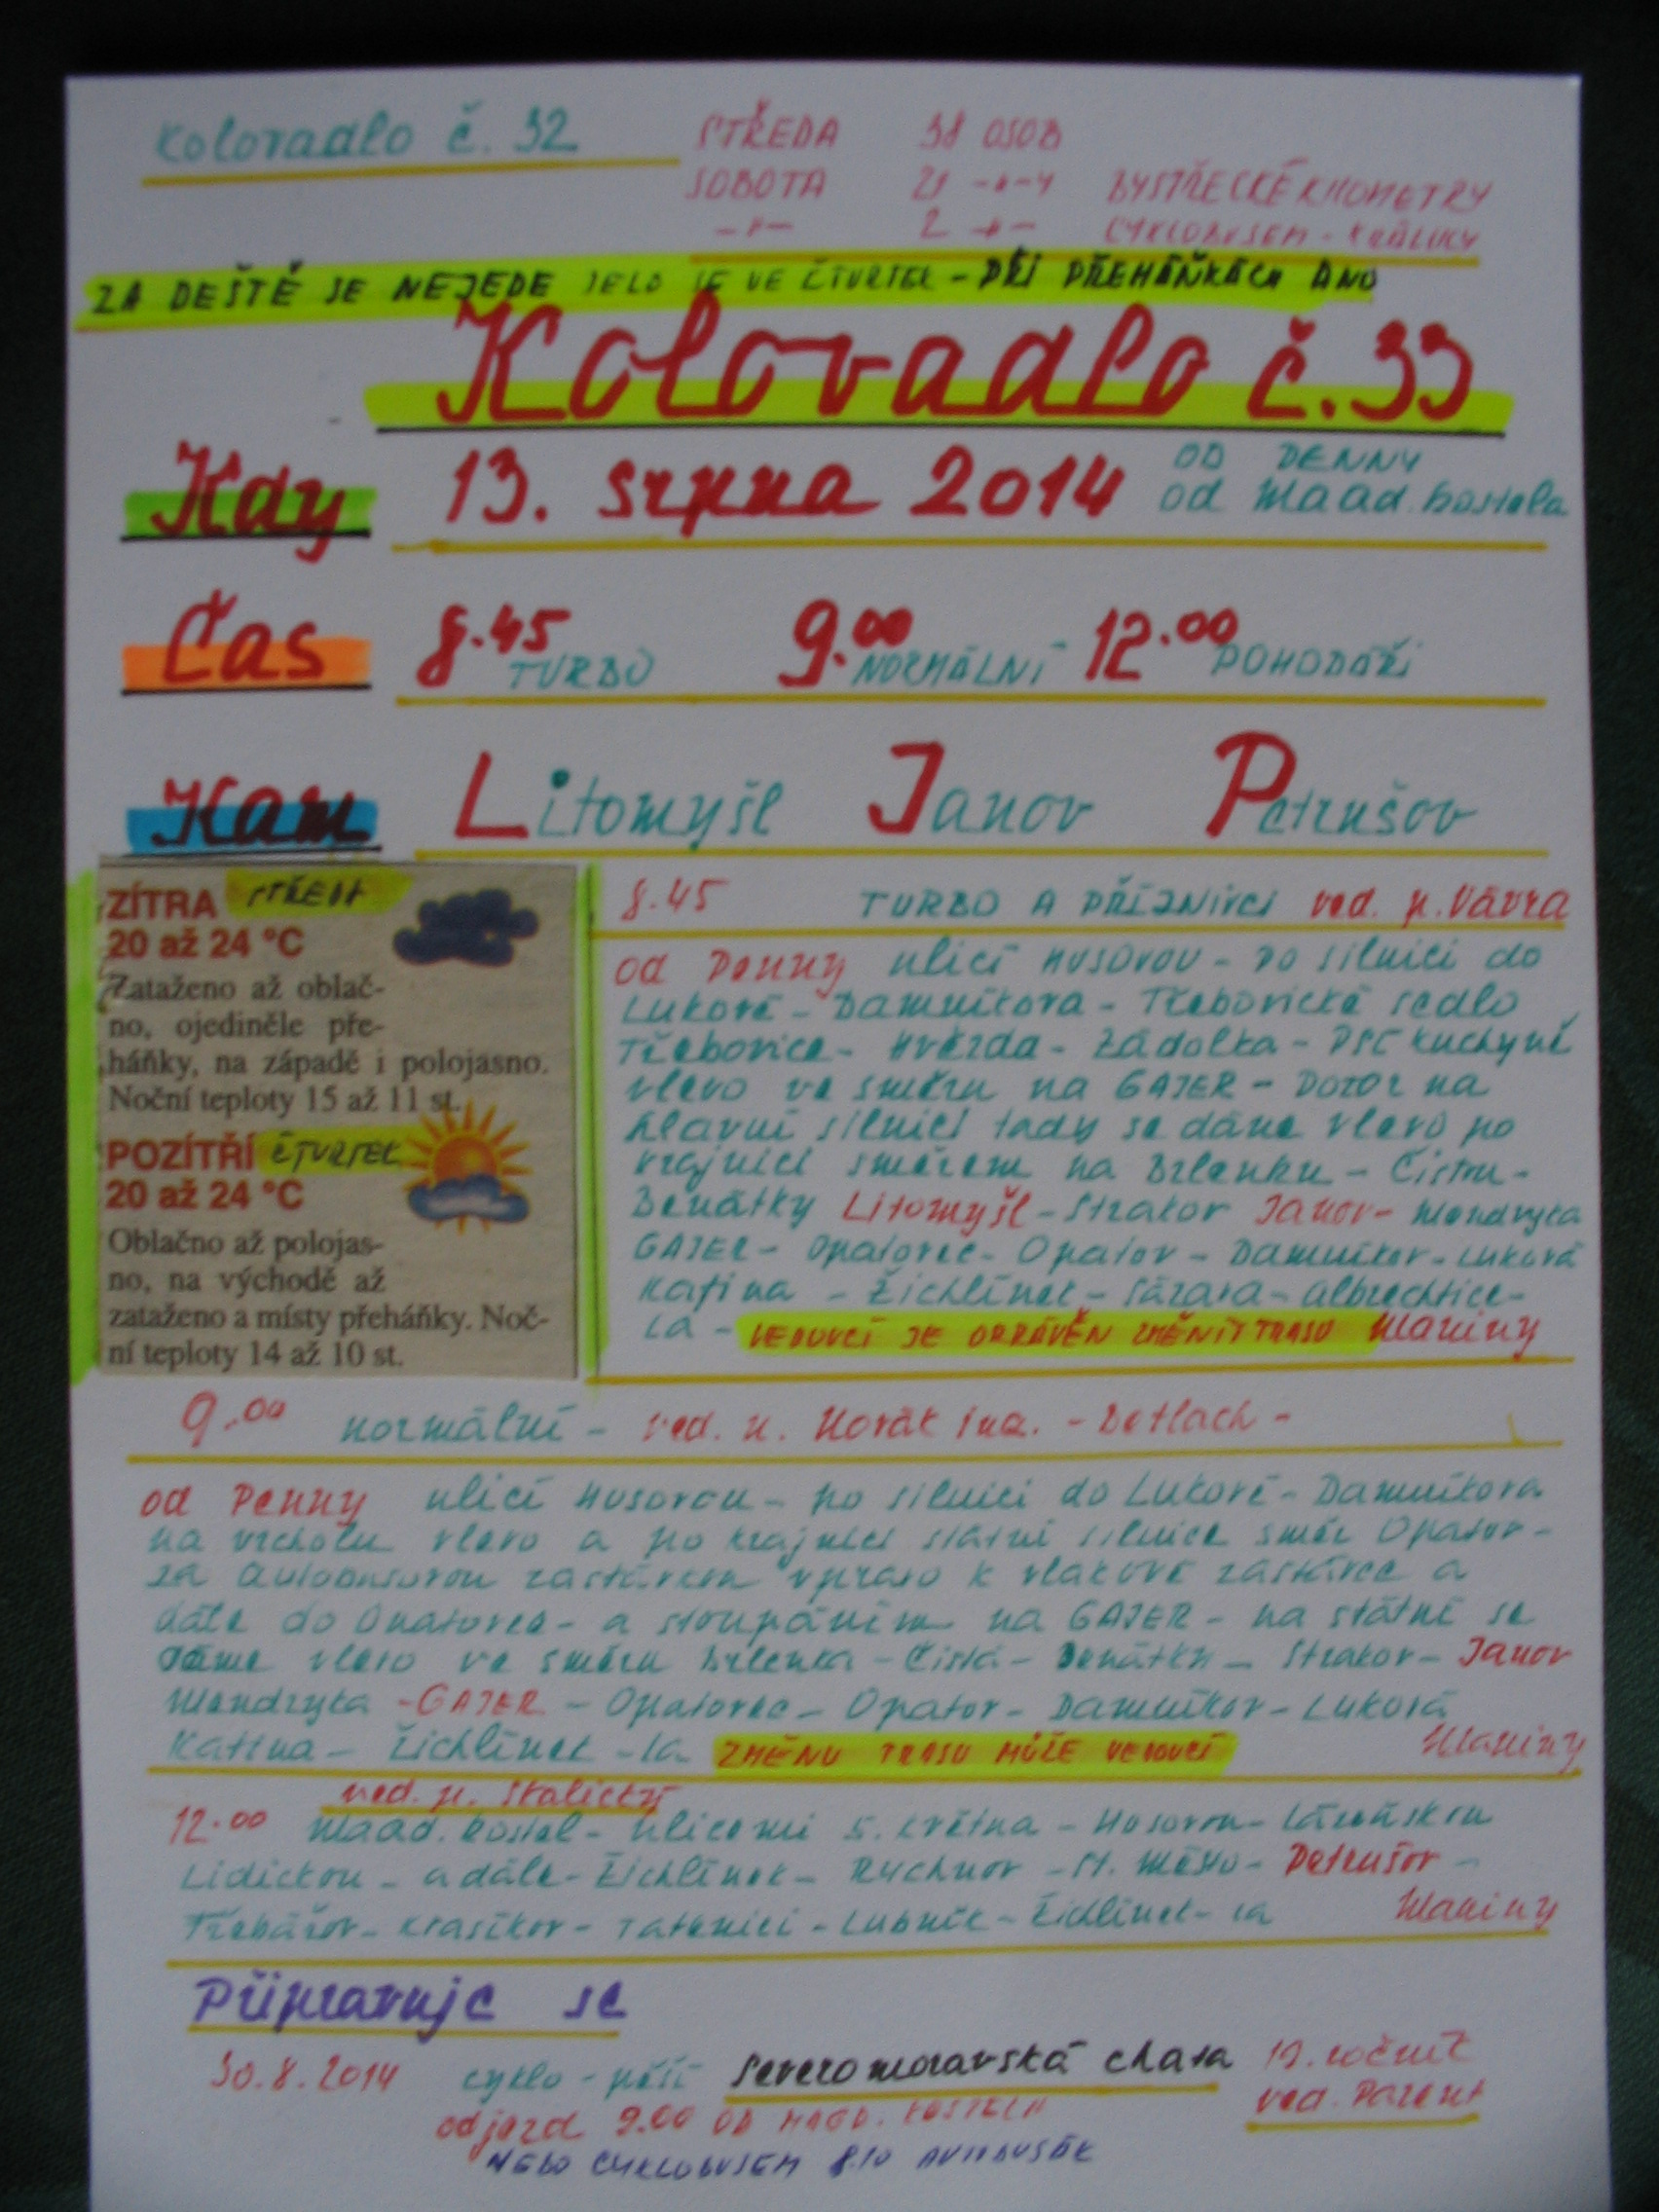 Kolovadlo č. 32 STŘEDA 38 OSOB
SOBOTA 21 -"- BYSTŘECKÉ KILOMETRY
-"- 2 -"- CYKLOBUSEM - KRÁLÍKY
ZA DEŠTĚ SE NEJEDE JELO SE VE ČTVRTEK - PŘI PŘEHÁŇKÁCH ANO
Kolovadlo č. 33
Kdy 13. srpna 2014 OD PENNY
od Maad. kostela
Čas 8.45 TURBO 9.00 NORMÁLNÍ 12.00 POHODÁŘI
Kam Litomyšl Janov Petrušov
ZÍTRA STŘEDA
20 až 24 °C
Zataženo až oblač-
no, ojediněle pře-
háňky, na západě i polojasno.
Noční teploty 15 až 11 st.
POZÍTŘÍ ČTVRTEK
20 až 24 °C
Oblačno až polojas-
no, na východě až
zataženo a místy přeháňky. Noč-
ní teploty 14 až 10 st.
8.45 TURBO A PŘÍZNIVCI ved. p. Vávra
od Penny ulicí HUSOVOU - po silnici do
Lukové - Damníkova - Třebovické sedlo
Třebovice - Hvězda - Zádolka - PSČ kuchyně
vlevo ve směru na GAJER - POZOR na
hlavní silnici tady se dáme vlevo po
krajnici směrem na Brlenku - Čistou -
Benátky Litomyšl - Strakov Janov - Mendryka
GAJER - Opatovec - Opatov - Damníkov - Luková
Katina - Žichlínek - Sázava - Albrechtice -
La - VEDOUCÍ JE OPRÁVĚN ZMĚNIT TRASU Maniny
9.00 normální - ved. p. Horák ing. - Detlach -
od Penny ulicí Husovou - po silnici do Lukové - Damníkova
na vrcholu vlevo a po krajnici státní silnice směr Opatov -
za autobusovou zastávkou vpravo k vlakové zastávce a
dále do Opatovce - a stoupáním na GAJER - na státní se
dáme vlevo ve směru Brlenka - Čistá - Benátky - Strakov - Janov
Mendryka - GAJER - Opatovec - Opatov - Damníkov - Luková
Katina - Žichlínek - La ZMĚNU TRASU MŮŽE VEDOUCÍ Maniny
ved. p. Stalický
12.00 Maad. kostel - ulicemi 5. května - Husovou - Lázeňskou
Lidickou - a dále - Žichlínek - Rychnov - St. Město - Petrušov -
Třebářov - Krasíkov - Tatenici - Lubník - Žichlínek - La Maniny
Připravuje se
30.8.2014 cyklo - pěší Severomoravská chata 19. ročník
odjezd 9.00 OD MAGD. KOSTELA ved. Parent
NEBO CYKLOBUSEM 8.10 AUTOBUSÁK